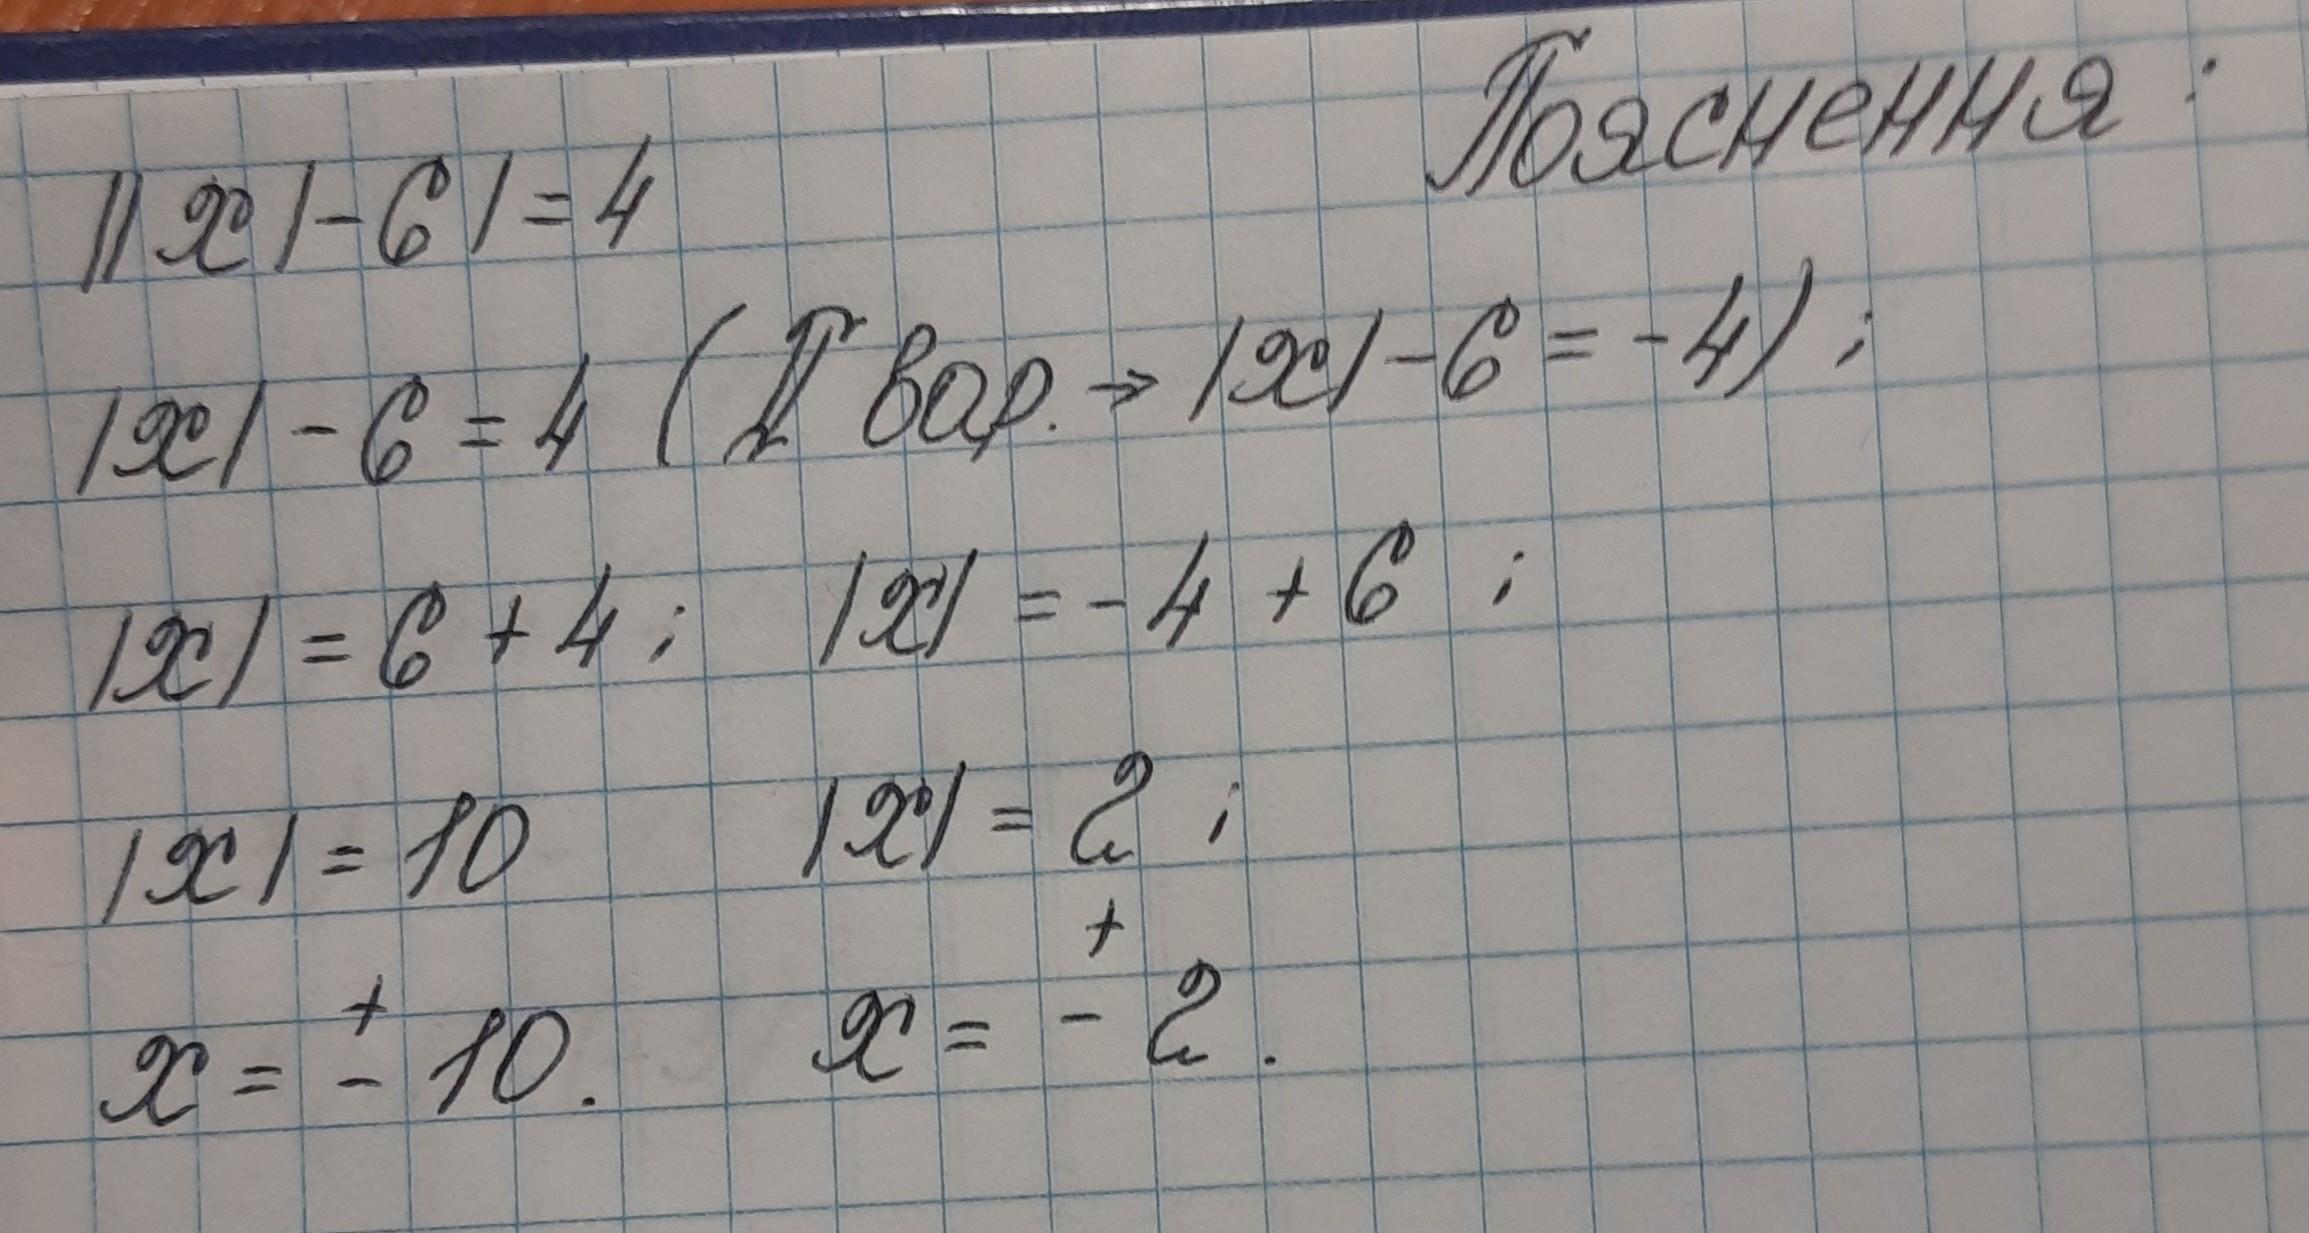 Пояснення:
||x|-6|=4
|x|-6=4 (II вар. → |x|-6=-4);
|x|=6+4; |x|=-4+6;
|x|=10 |x|=2;
x=±10. x=±2.